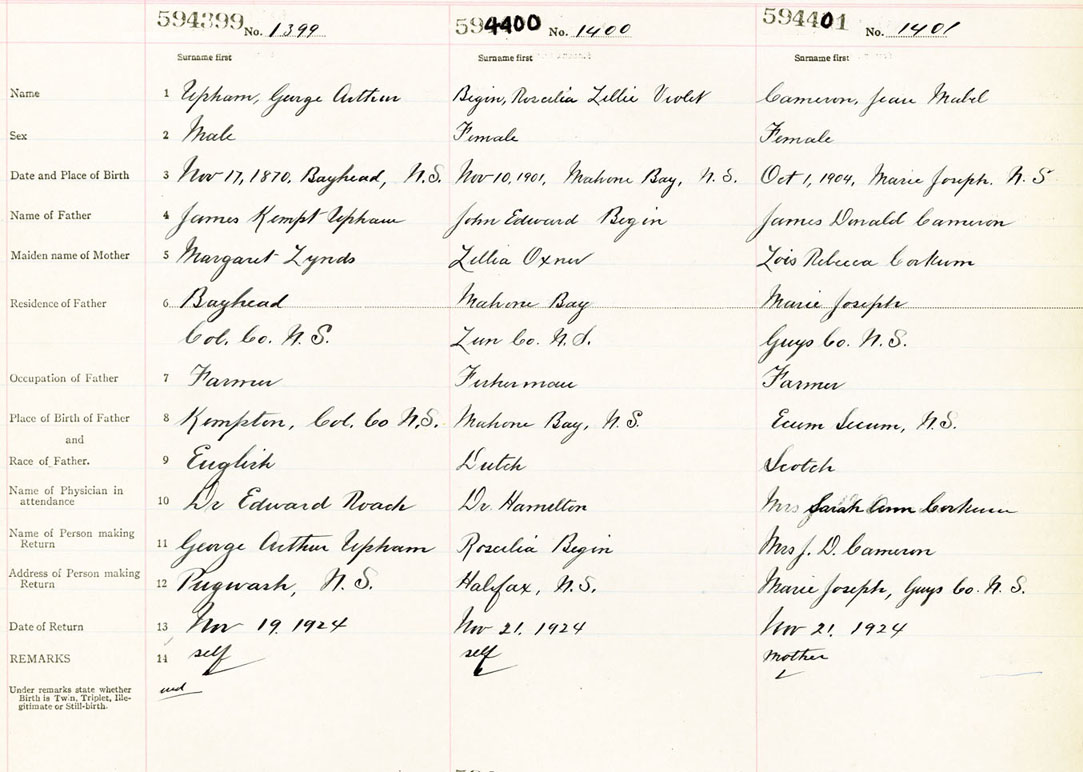 594399 No. 1399 594400 No. 1400 594401 No. 1401
Surname first Surname first Surname first
Name 1 Upham, George Arthur Begin, Roscilia Lillie Violet Cameron, Jean Mabel
Sex 2 Male Female Female
Date and Place of Birth 3 Nov 17, 1870, Bayhead, N.S. Nov 10, 1901, Mahone Bay, N.S. Oct 1, 1904, Marie Joseph. N.S
Name of Father 4 James Kempt Upham John Edward Begin James Donald Cameron
Maiden name of Mother 5 Margaret Lynds Lillia Oxner Lois Rebecca Corkum
Residence of Father 6 Bayhead Mahone Bay Marie Joseph
Col. Co. N.S. Lun Co. N.S. Guys Co. N.S.
Occupation of Father 7 Farmer Fisherman Farmer
Place of Birth of Father 8 Kempton, Col. Co N.S. Mahone Bay, N.S. Ecum Secum, N.S.
and
Race of Father. 9 English Dutch Scotch
Name of Physician in attendance 10 Dr Edward Roach Dr. Hamelton Mrs Sarah Ann Corkum
Name of Person making Return 11 George Arthur Upham Roscilia Begin Mrs J. D. Cameron
Address of Person making Return 12 Pugwash, N.S. Halifax, N.S. Marie Joseph, Guys Co. N.S.
Date of Return 13 Nov 19. 1924 Nov 21. 1924 Nov 21. 1924
REMARKS 14 self self mother
Under remarks state whether
Birth is Twin, Triplet, Ille-
gitimate or Still-birth.